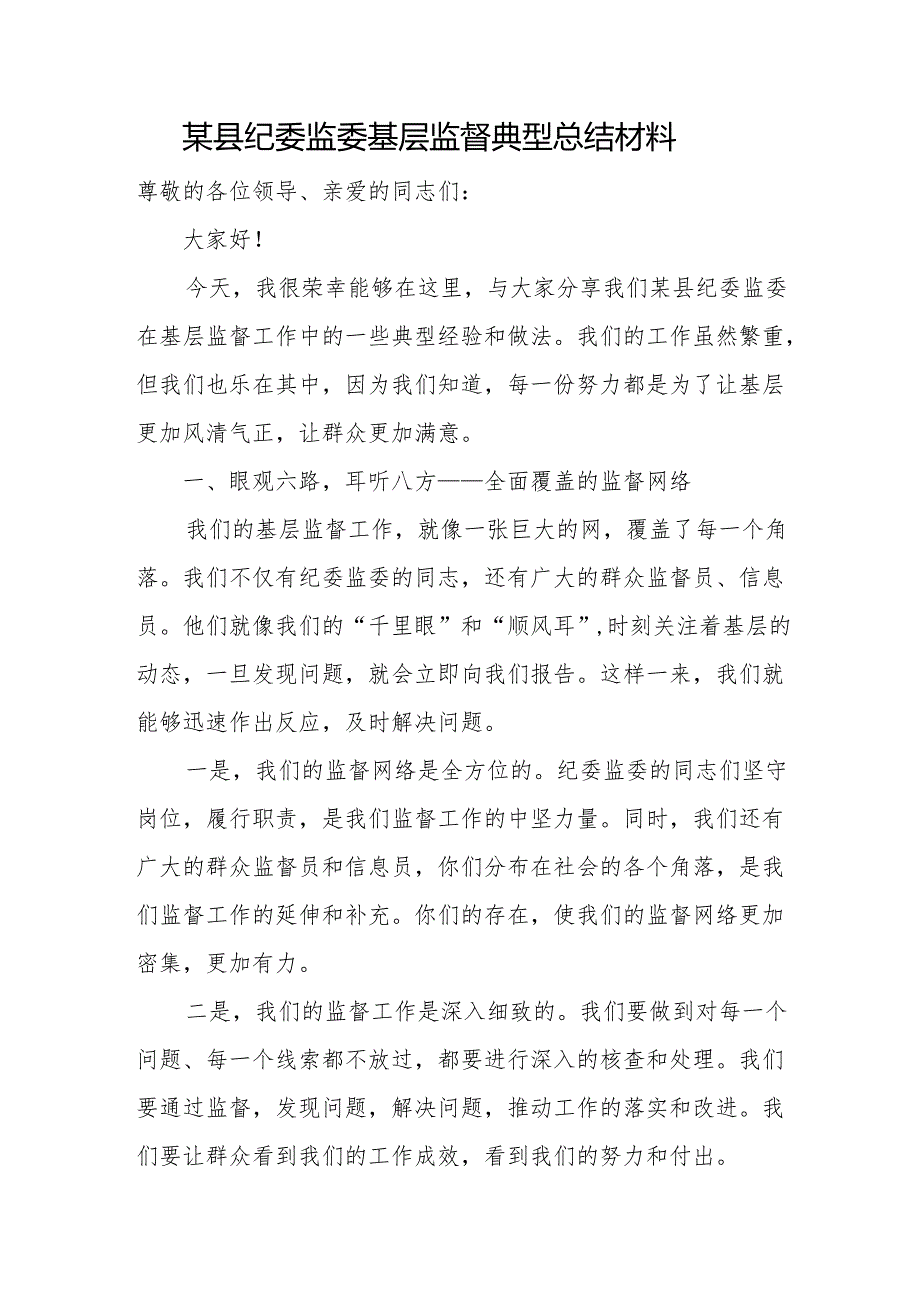 某县纪委监委基层监督典型总结材料
尊敬的各位领导、亲爱的同志们：
大家好！
今天，我很荣幸能够在这里，与大家分享我们某县纪委监委
在基层监督工作中的一些典型经验和做法。我们的工作虽然繁重，
但我们也乐在其中，因为我们知道，每一份努力都是为了让基层
更加风清气正，让群众更加满意。
一、眼观六路，耳听八方——全面覆盖的监督网络
我们的基层监督工作，就像一张巨大的网，覆盖了每一个角
落。我们不仅有纪委监委的同志，还有广大的群众监督员、信息
员。他们就像我们的“千里眼”和“顺风耳”,时刻关注着基层的
动态，一旦发现问题，就会立即向我们报告。这样一来，我们就
能够迅速作出反应，及时解决问题。
一是，我们的监督网络是全方位的。纪委监委的同志们坚守
岗位，履行职责，是我们监督工作的中坚力量。同时，我们还有
广大的群众监督员和信息员，你们分布在社会的各个角落，是我
们监督工作的延伸和补充。你们的存在，使我们的监督网络更加
密集，更加有力。
二是，我们的监督工作是深入细致的。我们要做到对每一个
问题、每一个线索都不放过，都要进行深入的核查和处理。我们
要通过监督，发现问题，解决问题，推动工作的落实和改进。我
们要让群众看到我们的工作成效，看到我们的努力和付出。